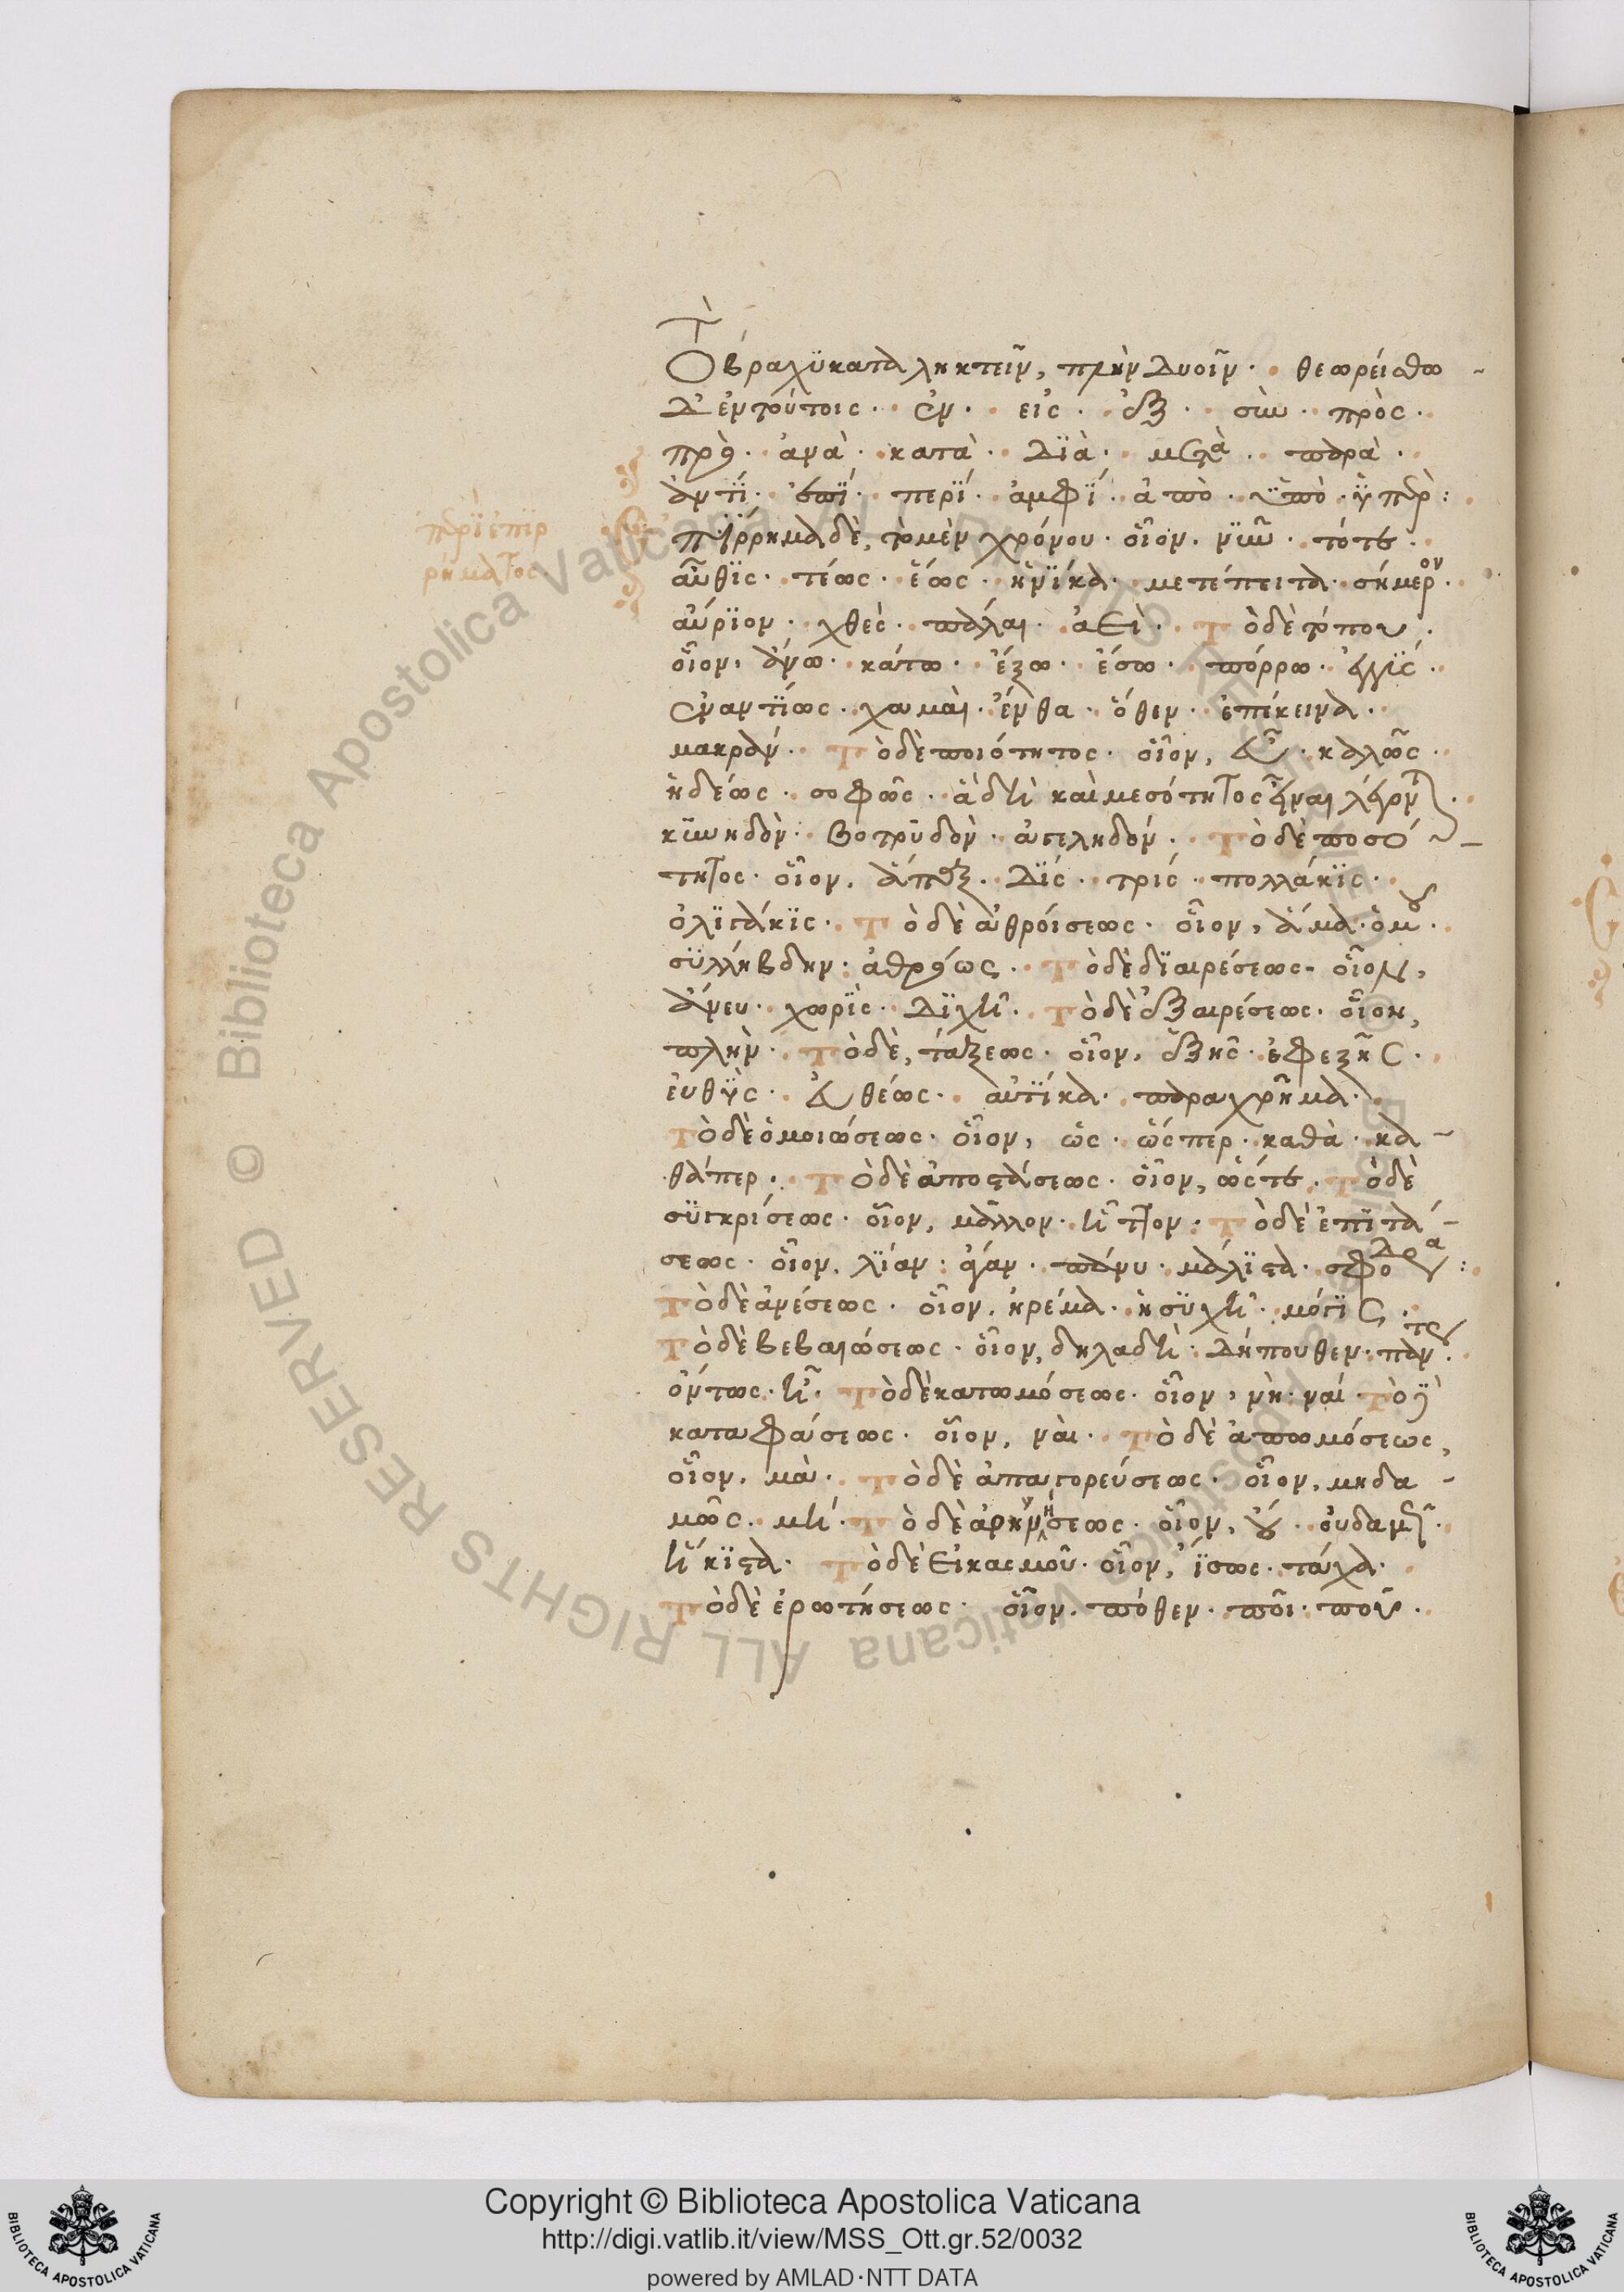 Τὸ βραχϋκαταληκτεῖν, πλὴν δυοῖν· θεωρείσθω
δ' ἐν τούτοις· ἐν· εἰς· ἐξ· σὺν· πρὸς·
πρὸ· ἀνὰ· κατὰ· δϊὰ· μετὰ· παρὰ·
ἀντΐ· ἐπΐ· περΐ· ἀμφΐ· ἀπὸ· ϋ̓πὸ· ϋ̓πὲρ:
περϊ ἐπϊρ
ρήματος
Ἐπΐρρημα δὲ, τὸ μὲν χρόνου· οἷον· νῦν· τότε·
αὖθϊς· τέως· ἕως· ἡνΐκα· μετέπειτα· σήμερον·
αὔρϊον· χθὲς· πάλαι· ἀεὶ· Τὸ δὲ τόπου·
οἷον, ἄνω· κάτω· ἔξω· ἔσω· πόρρω· ἐγγΐς·
ἐναντΐως· χαμαὶ· ἔνθα· ὅθεν· ἐπέκεινα·
μακράν· Τὸ δὲ ποιότητος· οἷον, εὖ· καλῶς·
ἡδέως· σοφῶς· ἃ δὴ καὶ μεσότητος εἶναι λέγουσι·
κϋνηδὸν· βοτρϋδὸν· ἀγεληδόν· Τὸ δὲ ποσό
τητος· οἷον, ἅπαξ· δΐς· τρίς· πολλάκϊς·
ὀλϊγάκϊς· Τὸ δὲ ἀθροίσεως· οἷον, ἅμα· ὁμοῦ·
σϋλλήβδην· ἀθρόως· Τὸ δὲ δϊαιρέσεως· οἷον,
ἄνευ· χωρῒς· δϊχῆ· Τὸ δὲ ἐξαιρέσεως· οἷον,
πλὴν· Τὸ δὲ, τάξεως· οἷον, ἑξῆς· ἐφεξῆς·
εὐθῢς· εὐθέως· αὐτΐκα· παραχρῆμα·
Τὸ δὲ ὁμοιώσεως· οἷον, ὡς· ὥσπερ· καθὰ· κα
θάπερ· Τὸ δὲ ἀποστάσεως· οἷον, ὥστε· Τὸ δὲ
σϋγκρίσεως· οἷον, μᾶλλον· ἧττον· Τὸ δὲ ἐπϊτά
σεως· οἷον, λΐαν· ἄγαν· πάνυ· μάλϊστα· σφόδρα:
Τὸ δὲ ἀνέσεως· οἷον, ἠρέμα· ἡσϋχῆ· μόγϊς·
Τὸ δὲ βεβαιώσεως· οἷον, δηλαδὴ· δήπουθεν· πάντως·
ὄντως· ἦ· Τὸ δὲ κατωμόσεως· οἷον, νὴ· ναί· Τὸ δὲ
καταφάσεως· οἷον, ναὶ· Τὸ δὲ ἀπωμόσεως,
οἷον, μὰ· Τὸ δὲ ἀπαγορεύσεως· οἷον, μηδα
μῶς· μή· Τὸ δὲ ἀρνήσεως· οἷον, οὔ· οὐδαμῆ·
ἥκϊστα· Τὸ δὲ εἰκασμοῦ· οἷον, ἴσως· τάχα·
Τὸ δὲ ἐρωτήσεως· οἷον, πόθεν· ποῖ· ποῦ·
Copyright © Biblioteca Apostolica Vaticana
http://digi.vatlib.it/view/MSS_Ott.gr.52/0032
powered by AMLAD·NTT DATA
BIBLIOTECA APOSTOLICA VATICANA
BIBLIOTECA APOSTOLICA VATICANA
© Biblioteca Apostolica Vaticana ALL RIGHTS RESERVED